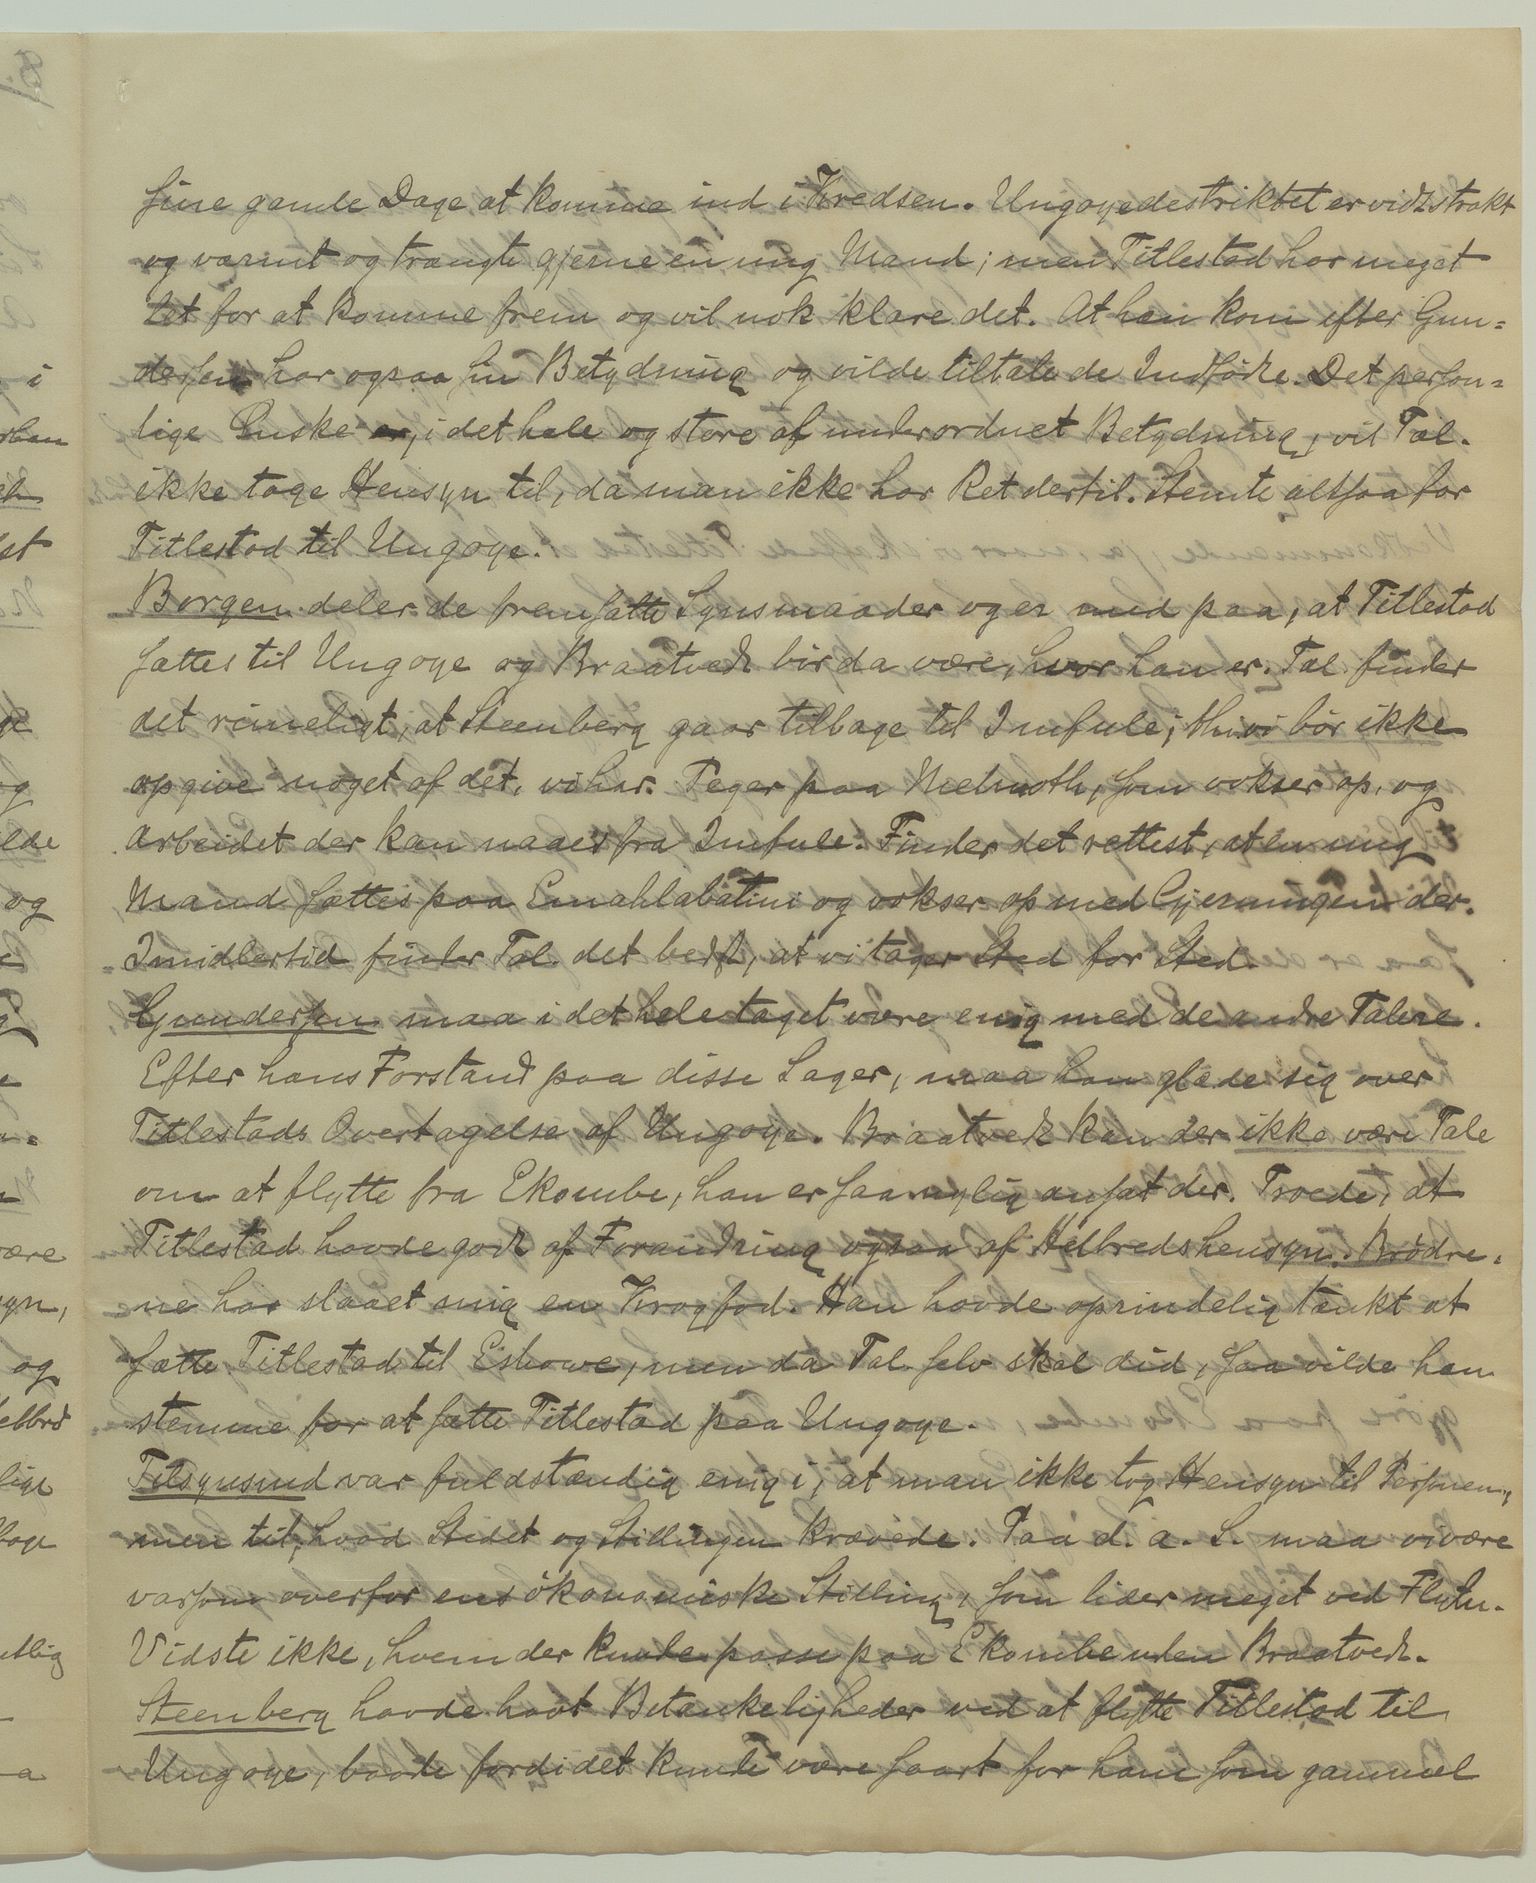 sine gamle Dage at komme ind i Kredsen. Ungoyedestriktet er vidtstrakt
og varmt og trængte gjerne en ung Mand; men Titlestad har meget
let for at komme frem og vil nok klare det. At han kom efter Gun-
dersen har ogsaa sin Betydning og vilde tiltale de Indfødte. Det person-
lige Ønske er, i det hele og store af underordnet Betydning, vil Tal.
ikke tage Hensyn til, da man ikke har Ret dertil. Stemte altsaa for
Titlestad til Ungoye.
Borgen deler de fremsatte Synsmaader og er med paa, at Titlestad
sættes til Ungoye og Braatvedt bør da være, hvor han er. Tal. finder
det rimeligt, at Steenberg gaar tilbage til Imfule; thi vi bør ikke
opgive noget af det, vi har. Peger paa Melmoth, som vokser op, og
Arbeidet der kan naaes fra Imfule. Finder det rettest, at en ung
Mand sættes paa Emahlabatini og vokser op med Gjerningen der.
Imidlertid finder Tal. det bedst, at vi tager Sted for Sted.
Gundersen maa i det hele taget være enig med de andre Talere.
Efter hans Forstand paa disse Sager, maa han glæde sig over
Titlestads Overtagelse af Ungoye. Braatvedt kan der ikke være Tale
om at flytte fra Ekombe, han er saa nylig ansat der. Troede, at
Titlestad havde godt af Forandring ogsaa af Helbredshensyn. Brødre-
ne har slaaet mig en Krogfod. Han havde oprindelig tænkt at
sætte Titlestad til Eshowe, men da Tal. selv skal did, saa vilde han
stemme for at sætte Titlestad paa Ungoye.
Tilsynsmd var fuldstændig enig i, at man ikke tog Hensyn til Personen,
men til, hvad Stedet og Stillingen krævede. Paa d. a. S. maa vi være
varsom overfor ens økonomiske Stilling, som lider meget ved Flytn.
Vidste ikke, hvem der kunde passe paa Ekombe uden Braatvedt.
Steenberg havde havt Betænkeligheder ved at flytte Titlestad til
Ungoye, baade fordi det kunde være haart for ham som gammel